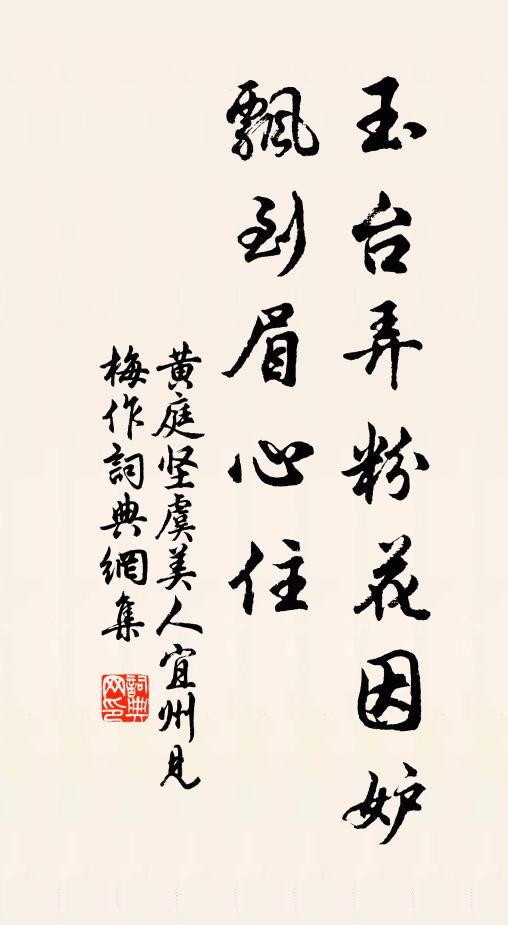 玉台弄粉花因妒
飘到眉心住
黄庭坚虞美人宜州见
梅作詞典網集
詞典
网印